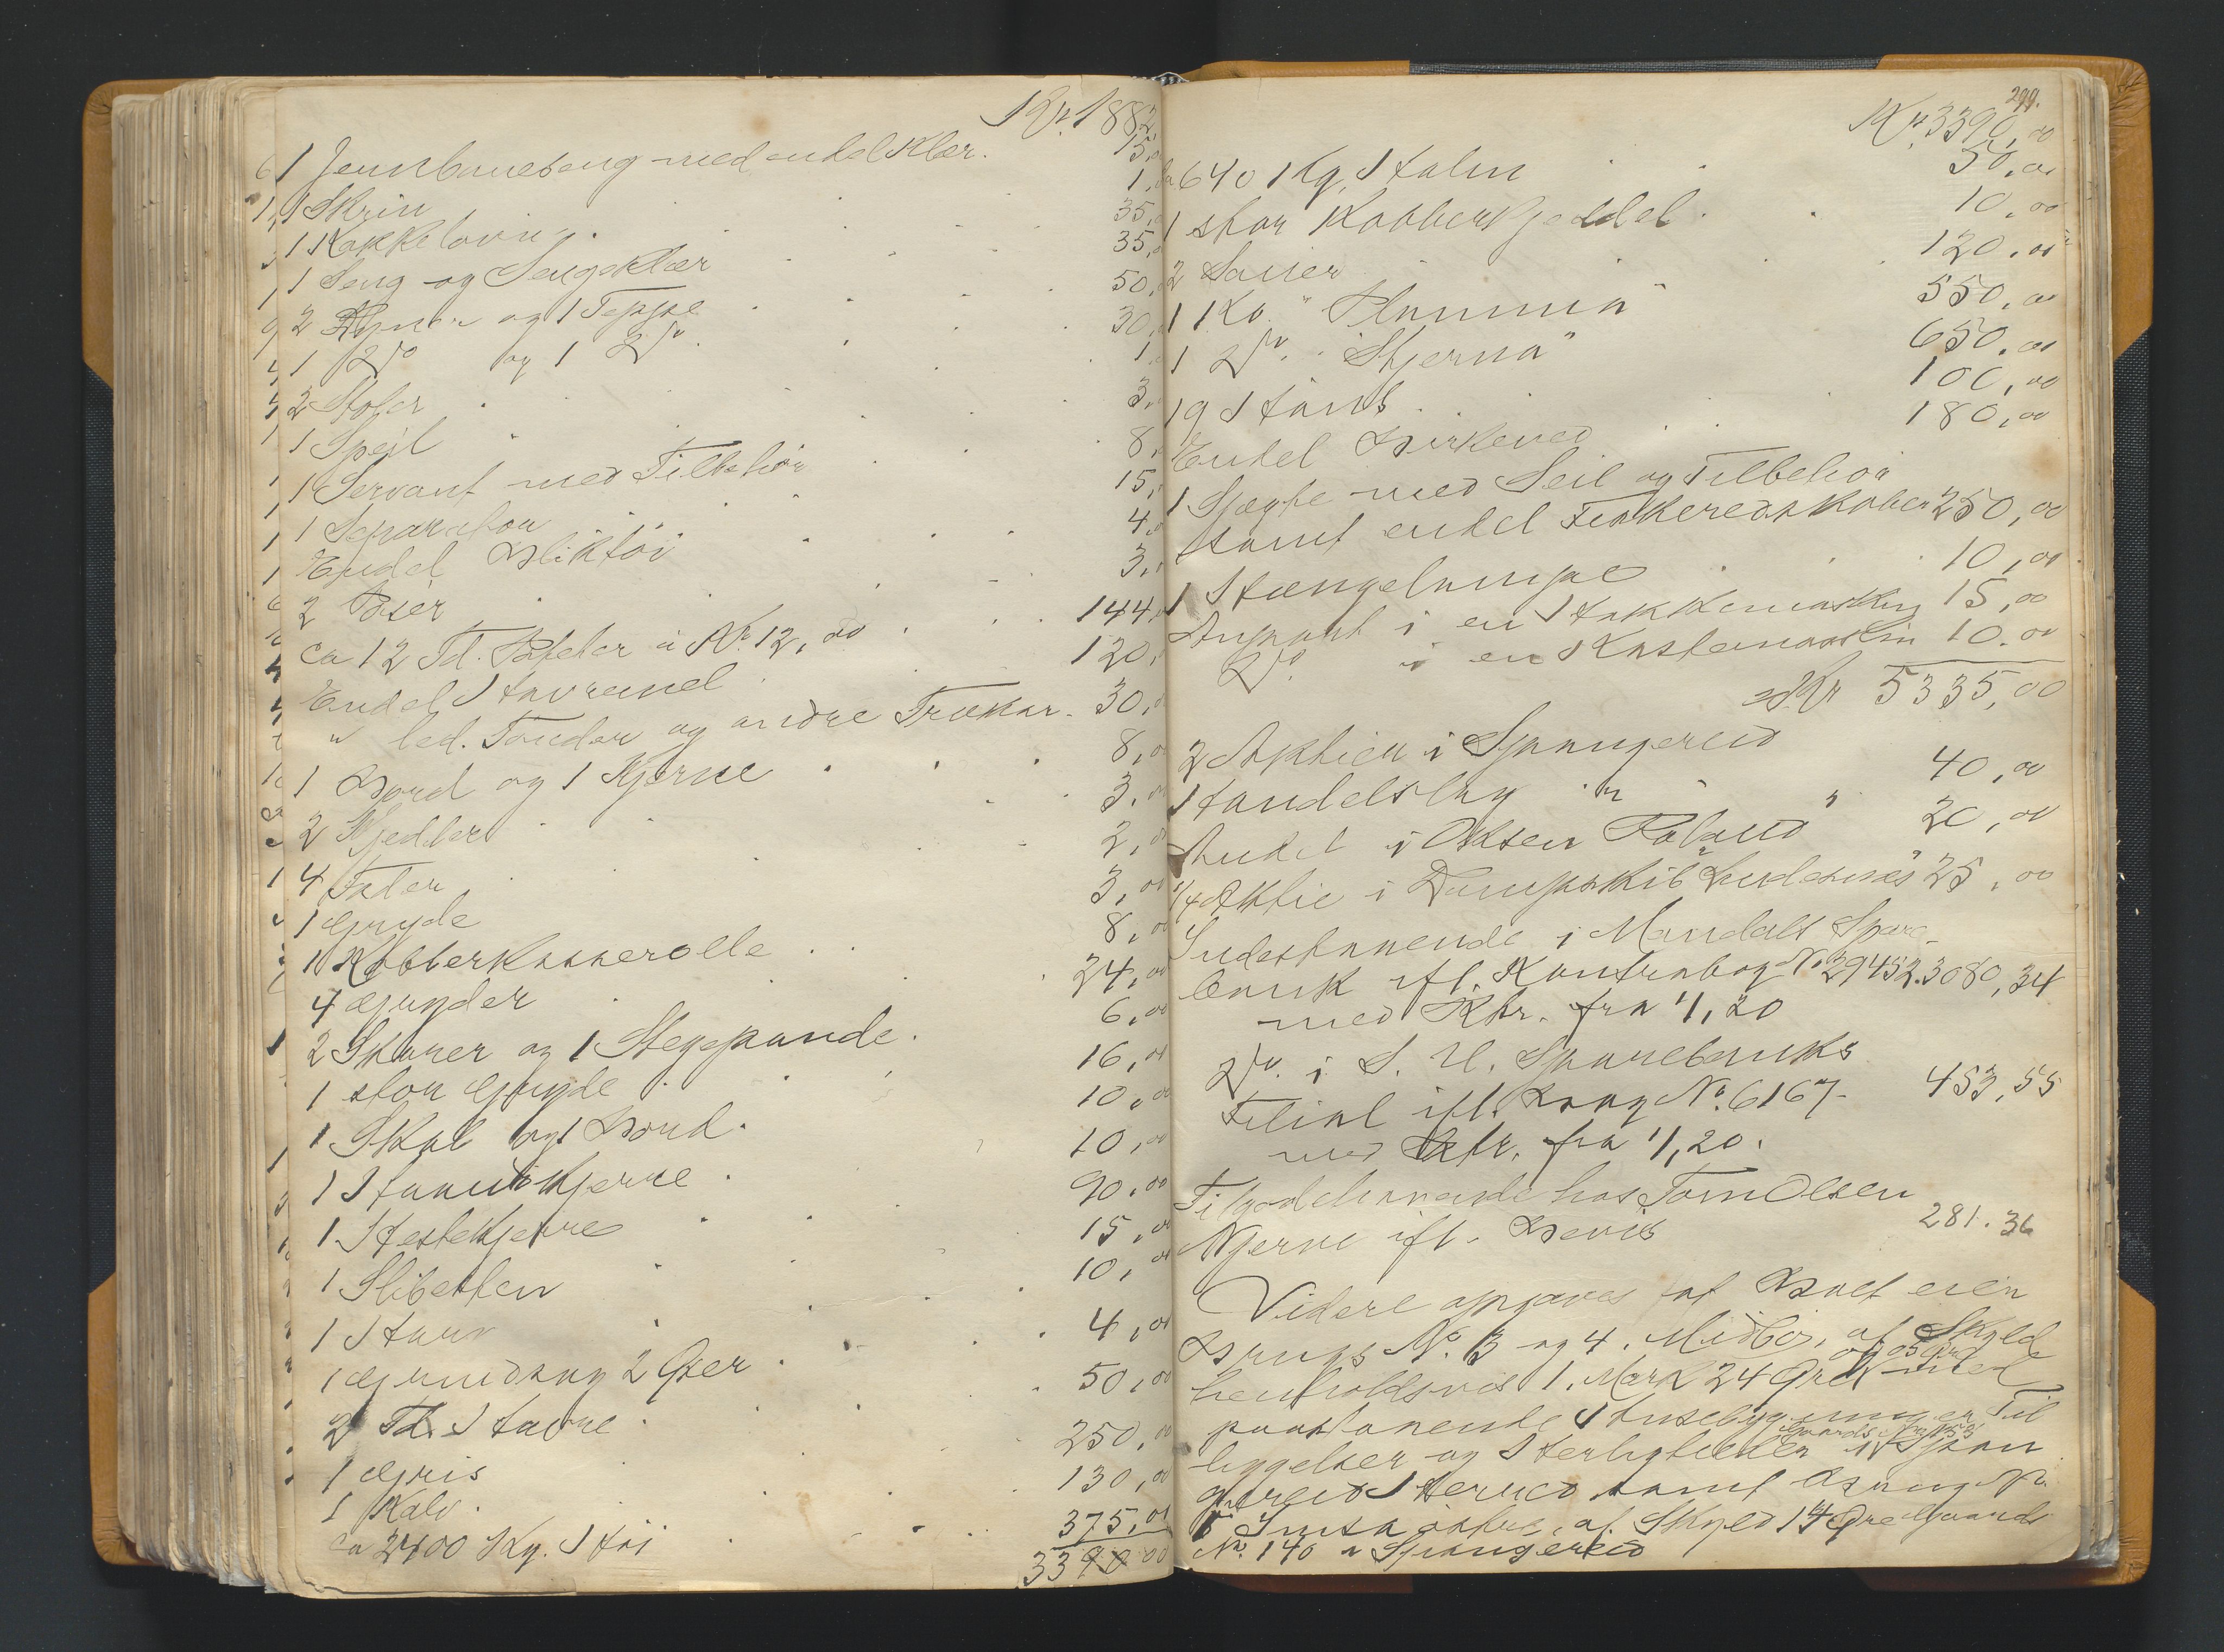 Kr. 1882,
1 Jernbaneseng med endel Klær. 15,
1 Skrin 1,
1 Kakkelovn 35,
1 Seng og Sengeklær 35,
2 Dyner og 1 Teppe 50,
1 Do og 1 Do. 30,
2 Stoler 1,
1 Speil 3,
1 Servant med Tilbehör 8,
1 Separator 15,
Endel Bliktöi 4,
2 Böser 3,
ca 12 Td. Poteter à Kr. 12,00 144,
Endel Havremel 120,
" led. Tönder og andre Trækar 30,
1 Bord og 1 Kjerne 8,
2 Kjedler 3,
4 Fater 2,
1 Gryde 3,00
1 Kobberkasserolle 8,00
4 Grynder 24,00
2 Skurer og 1 Stegepande 6,00
1 stor Gryde 16,00
1 Skal og 1 Bord 10,00
1 Haandkjerre 10,00
1 Hestekjerre 90,00
1 Slibesten 15,00
1 Harv 10,00
1 Grindsag 2 Öxer 4,00
2 Td. Havre 50,00
1 Gris 250,00
1 Kalv 130,00
ca 2400 Kg. Höi 375,00
3390 00
299.
Kr. 3390,00
ca 640 Kg. Halm 50,00
1 stor Kobberkjeddel 10,00
2 Sauer 120,00
1 Ko "Plumma" 550,00
1 Do. "Stjerna" 650,00
19 Höns 100,00
Endel Birkeved 180,00
1 Sjægte med Seil og Tilbehör
samt endel Fiskeredskaber 250,00
1 Hængelampe 10,00
Anpart i en Hakkemaskin 15,00
Do. i en Kastemaskin 10.00
Kr 5335,00
2 Aktier i Spangereid
Handelslag 40,00
Andel i Oksen "Roland" 20,00
1/4 Aktie i Dampskib Lindesnæs 25,00
Indestaaende i Mandals Spare-
bank ifl. Kontrabog No 29452. 3080,34
med Rtr. fra 1/1, 20
Do. i S. U. Sparebanks
Filial ifl. Bog No. 6167 453,55
med Rtr. fra 1/1, 20.
Tilgodehavende hos Tom Olsen
Njerve ifl. Bevis 281.36
Videre opgaves at Boet eier
Brugs No. 3 og 4. Midbö, af Skyld
henholdsvis 1. Mark 24 Öre og 05 Öre med
paastaaende Husebygninger, Til-
liggelser og Herligheder Gaards No. 153 i Span
gereid Herred samt Brugs No.
5 Snisa östre, af Skyld 14 Öre Gaards
No. 140 i Spangereid